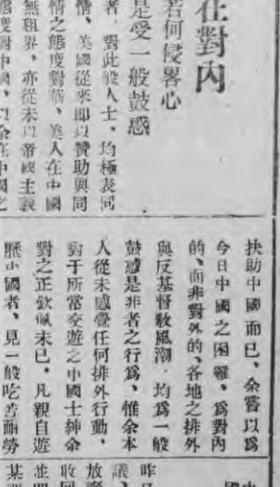 在對內
若何侵畧心
是受一般鼓惑
者、對此般人士、均極表同
情、美國從來即以贊助與同
情之態度對華、美人在中國
無租界、亦從未以帝國主義
態度對中國、以余在中國之
扶助中國而已、余嘗以爲
今日中國之困難、爲對內
的、而非對外的、各地之排外
與反基督敎風潮、均爲一般
鼓惑是非者之行爲、惟余本
人從未感覺任何排外行動、
對于所常交遊之中國士紳余
對之正欽佩未已、凡親自遊
歷中國者、見一般吃苦耐勞
國
昨日
議
放棄
收回
並
某